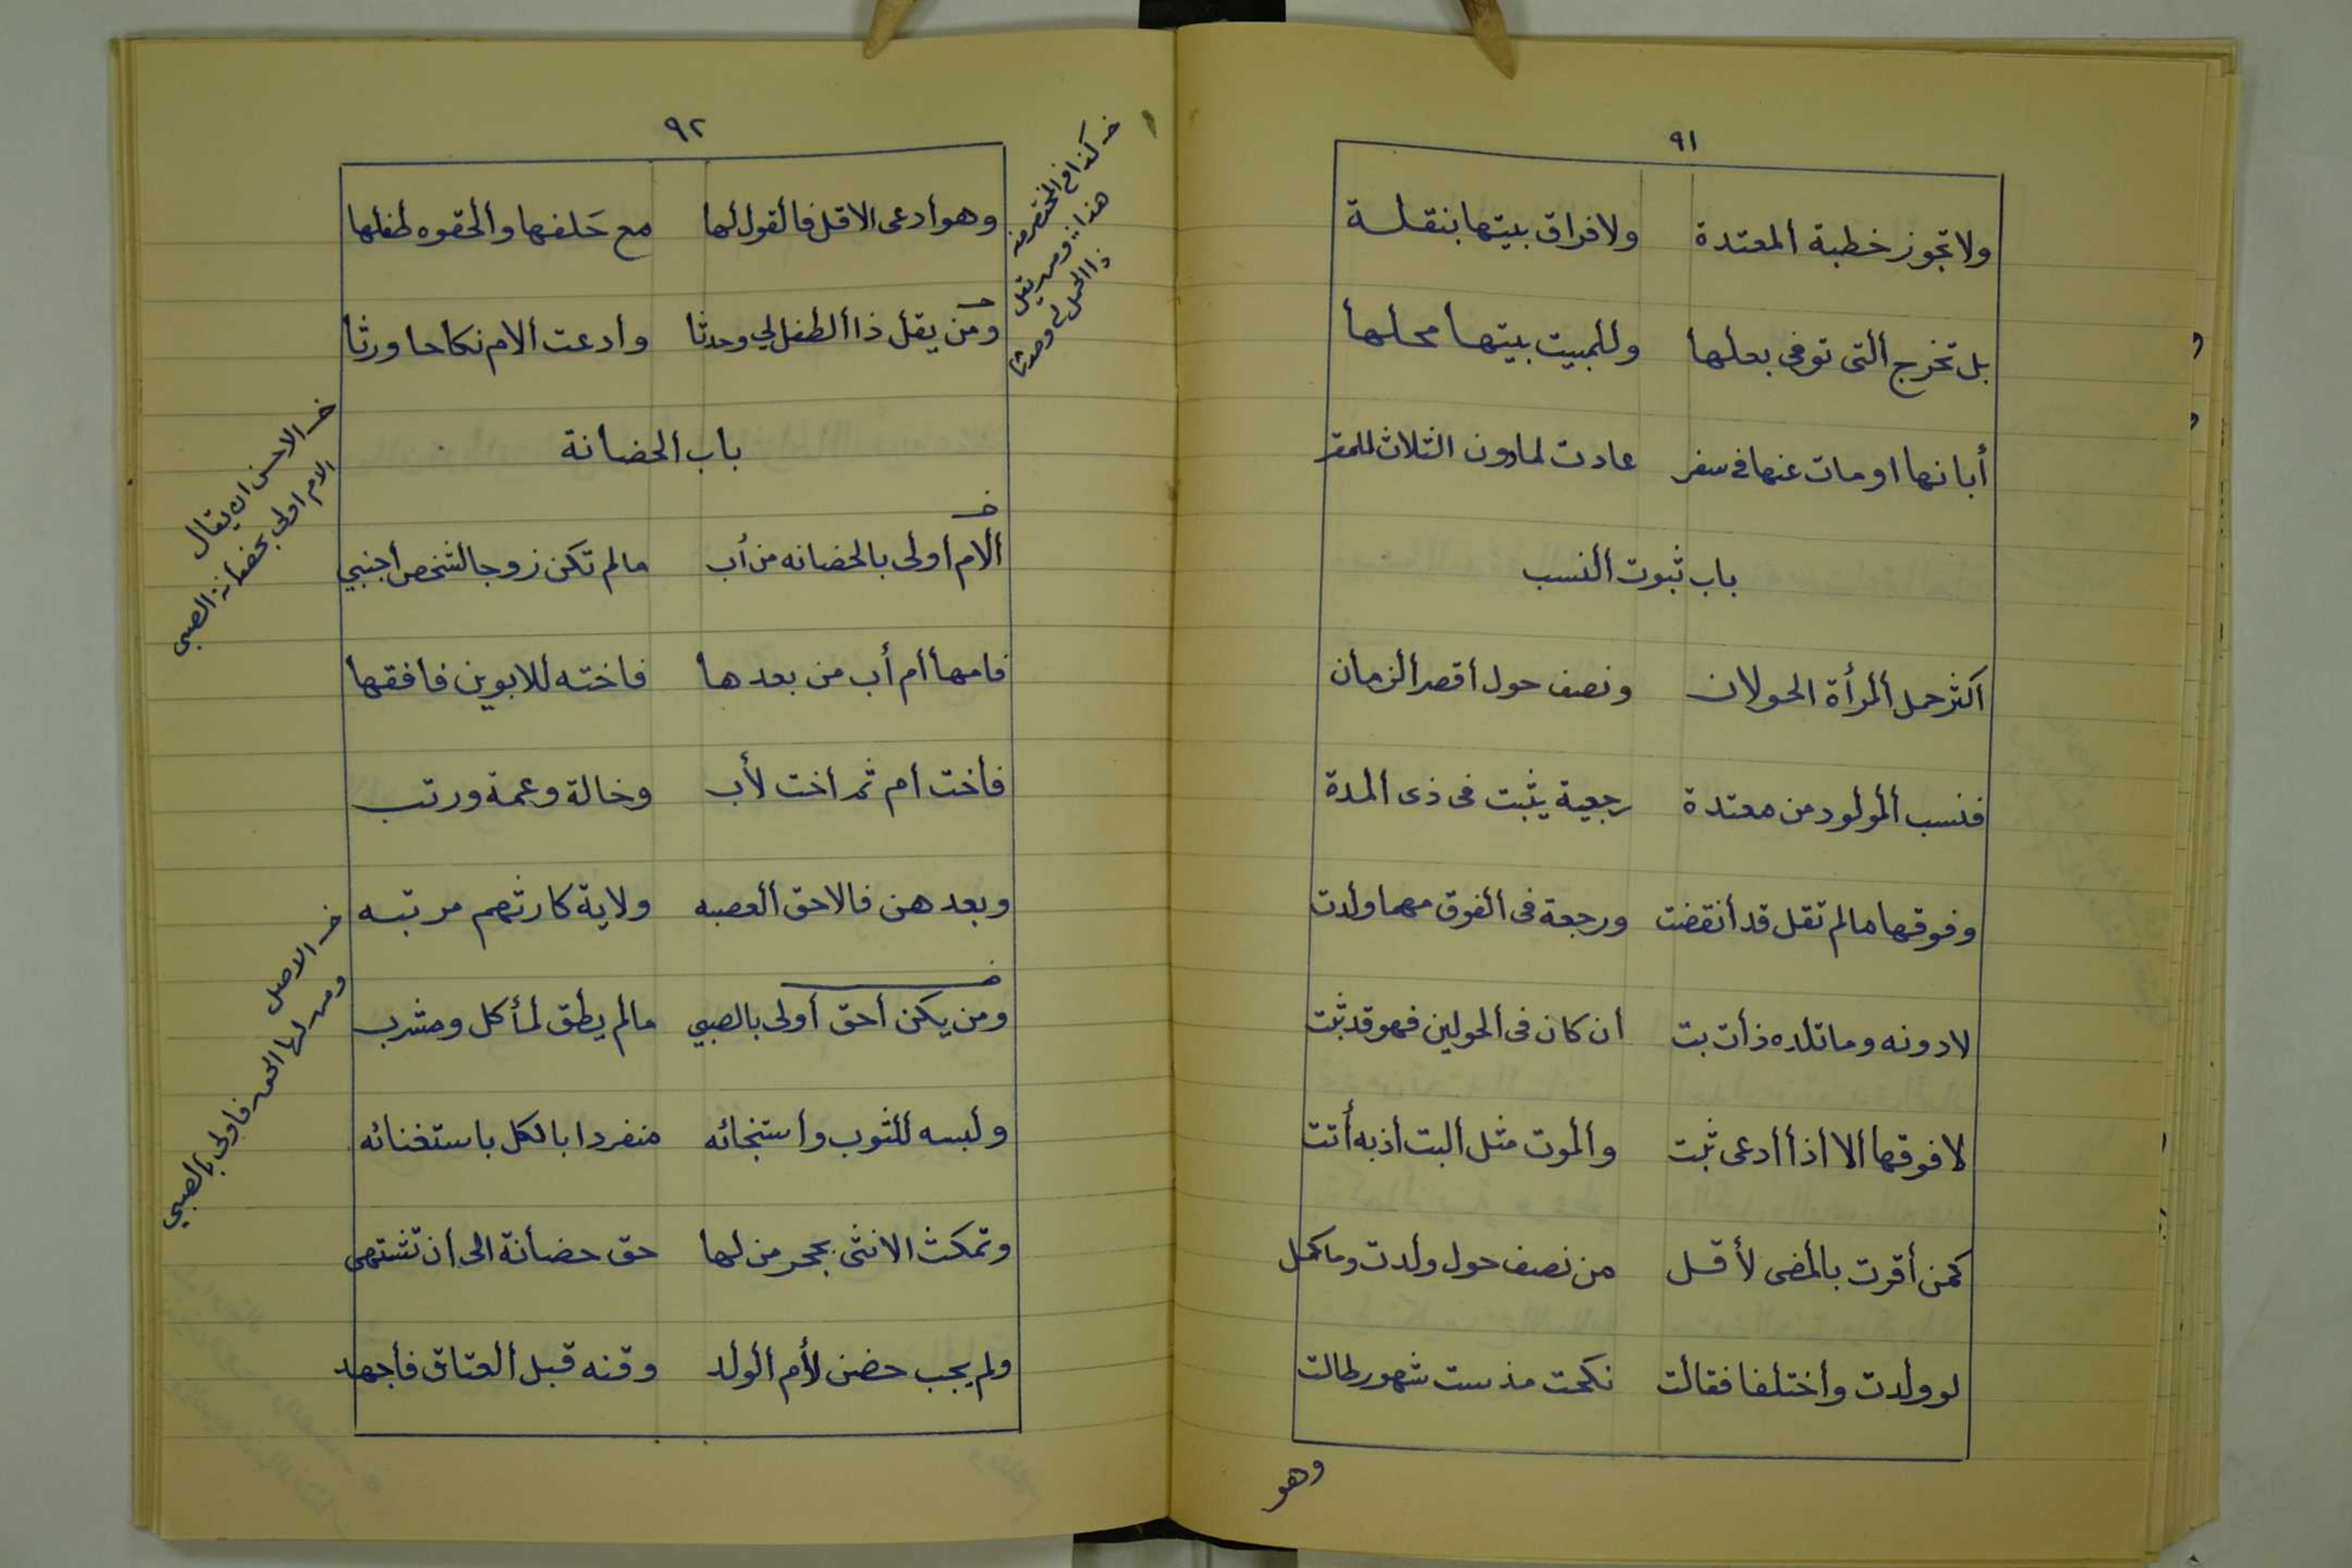 ٩١
ولا تجوز خطبة المعتدة ولا فراق بيتها بنقلة
بل تخرج التى توفى بعلها وللمبيت بيتها محلها
أبانها او مات عنها فى سفر عادت لما دون الثلاث للمقر
باب ثبوت النسب
اكثر حمل المرأة الحولان ونصف حول أقصر الزمان
فنسب المولود من معتدة رجعية يثبت فى ذى المدة
وفوقها مالم تقل قد أنقضت ورجعة فى الفوق مهما ولدت
لا دونه وما تلده ذات بت ان كان فى الحولين فهو قد ثبت
لا فوقها الا اذا أدعى ثبت والموت مثل البت اذ به أتت
كمن أقرت بالمضى لأقل من نصف حول ولدت وما كمل
لو ولدت وأختلفا فقالت نكحت مذ ست شهور طالت
وهو
٩٢
وهو أدعى الاقل فالقول لها مع حَلفها والحقوه طفلها
ومن يقل ذا الطفل لي وحدثا وادعت الام نكاحا ورثا
باب الحضانة
الام أولى بالحضانه من أب مالم تكن زوجا لشخص أجنبي
فامها أم أب من بعدها فاخته للابوين فافقها
فأخت ام ثم اخت لأب وخالة وعمة ورتب
وبعد هن فالاحق العصبه ولاية كارثهم مرتبه
ومن يكن أحق أولى بالصبي مالم يطق لمأكل ومشرب
ولبسه للثوب واستنجائه منفردا بالكل باستغنائه
وتمكث الانثى بحجر من لها حق حضانة الى ان تشتهى
ولم يجب حضن لأم الولد وقنه قبل العتاق فأجهد
خـ كذا فى المختصر منه
هذا :: ومن يقل
ذا الحمل لى وحدثا
خـ الاحسن ان يقال
الام اولى بحضانة الصبى
خـ الاصل
ومن لها الحق فاولى بالصبي